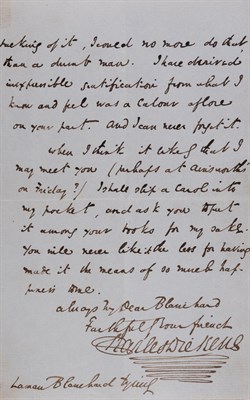 speaking of it, I could no more do that
than a dumb man. I have derived
inexpressible gratification from what I
know and feel was a labour of love
on your part. And I can never forget it.
When I think it likely that I
may meet you (perhaps at Ainsworth's
on Friday?) I shall slip a Carol into
my pocket, and ask you to put
it among your books for my sake.
You will never like it the less for having
made it the means of so much hap-
piness to me.
always My Dear Blanchard
Faithfully Your friend
Charles Dickens
Laman Blanchard Esquire